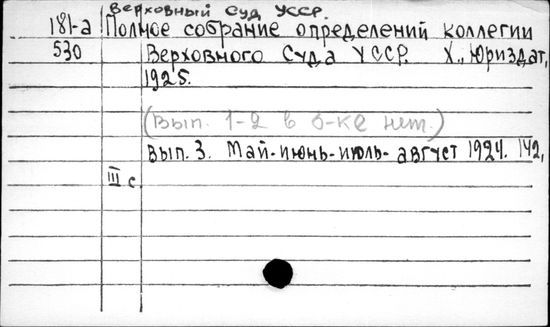 Верховный Суд УССР.
181-а Полное собрание определений коллегии
530 Верховного Суда УССР. Х., Юриздат,
1925.
(Вып. 1-2 в б-ке нет.)
Вып. 3. Май-июнь-июль-август 1924. 142,
III с.